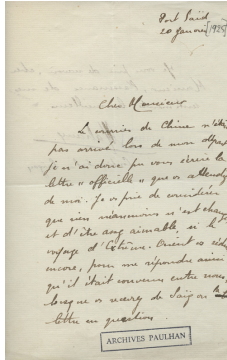 Port Saïd
20 janvier [1925]
Cher Monsieur
Le courrier de Chine n'était
pas arrivé lors de mon départ
je n'ai donc pu vous écrire la
lettre « officielle » que vs attendiez
de moi. Je vs prie de considérer
que rien néanmoins n'est changé
et d'être assez aimable, si le
voyage d'Extrême-Orient vs
encore, pour me répondre ainsi
qu'il était convenu entre nous,
lorsque vs aurez de Saïgon la
lettre en question.
ARCHIVES PAULHAN